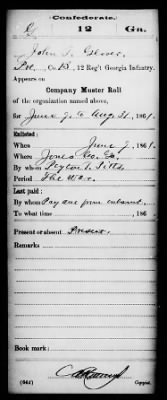 Confederate.
G 12 Ga.
John T. Glover
Pvt., Co. B, 12 Reg't Georgia Infantry.
Appears on
Company Muster Roll
of the organization named above,
for June 9 to Aug 31, 1861.
Enlisted:
When June 9, 1861.
Where Jones Co. Ga.
By whom Peyton T. Pitts
Period The War.
Last paid:
By whom Pay due from enlistment.
To what time , 186 .
Present or absent Present.
Remarks
Book mark:
(642) Copyist.